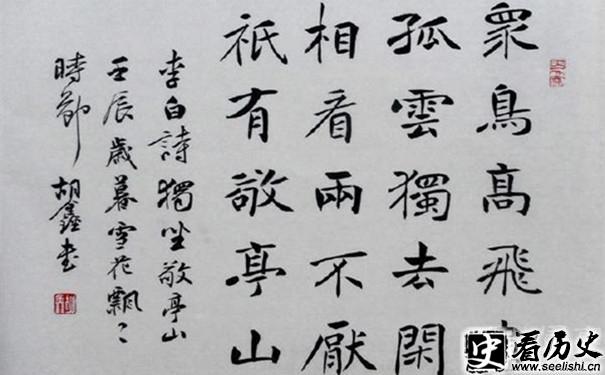 衆鳥髙飛
孤雲獨去閑
相看兩不厭
祇有敬亭山
李白詩獨坐敬亭山
壬辰歲暮雪花飄〻
時節 胡鑫书
史 看历史
www.seelishi.cn